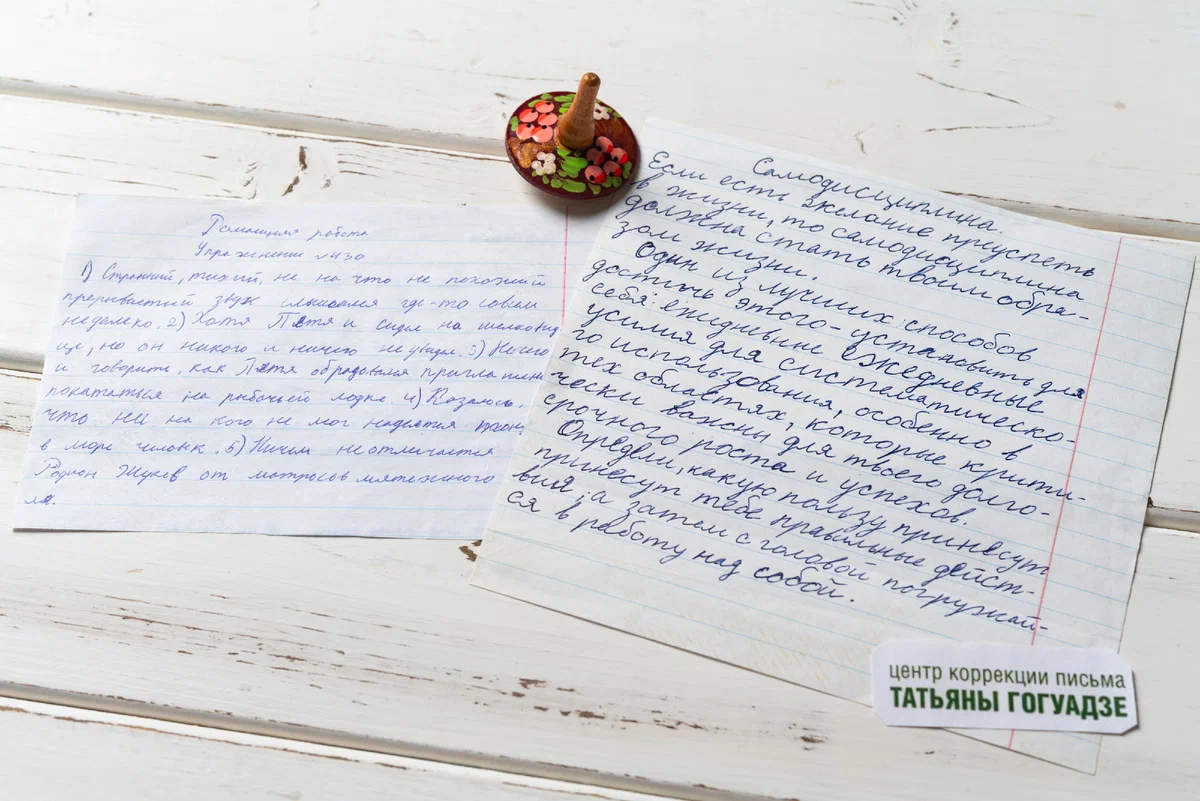 Домашняя работа
Упражнение №430
1) Странный, тихий, не на что не похожий
прерывистый звук слышался где-то совсем
недалеко. 2) Хатя Петя и сидел на шелкови
це, но он никого и ничего не увидел. 3) Нечего
и говорить, как Петя обрадовался приглашени
покататься на рабочей лодке. 4) Казалось,
что ни на кого не мог надеятся
в море человек. 5) Ничем неотличается
Родион Жуков от матросов мятежного
ля.
Самодисциплина.
Если есть желание приуспеть
в жизни, то самодисциплина
должна стать твоим обра-
зом жизни.
Один из лучших способов
достичь этого - установить для
себя ежедневные ежедневные
усилия для систематическо-
го использования, особенно в
тех областях, которые крити-
чески важны для твоего долго-
срочного роста и успехов.
Определи, какую пользу принесут
принесут тебе правильные дейст-
вия, а затем с головой погружай-
ся в работу над собой.
центр коррекции письма
ТАТЬЯНЫ ГОГУАДЗЕ